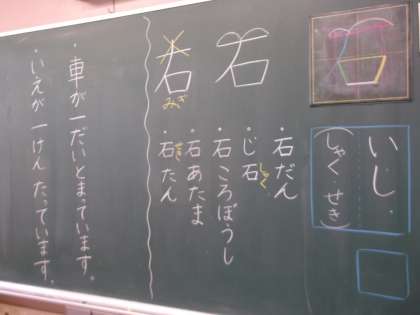 石
いし
(しゃく・せき)
石
・石だん
・じ石
しゃく
・石ころぼうし
・石あたま
・石たん
せき
右
みぎ
・車が一だいとまっています。
・いえが一けんたっています。